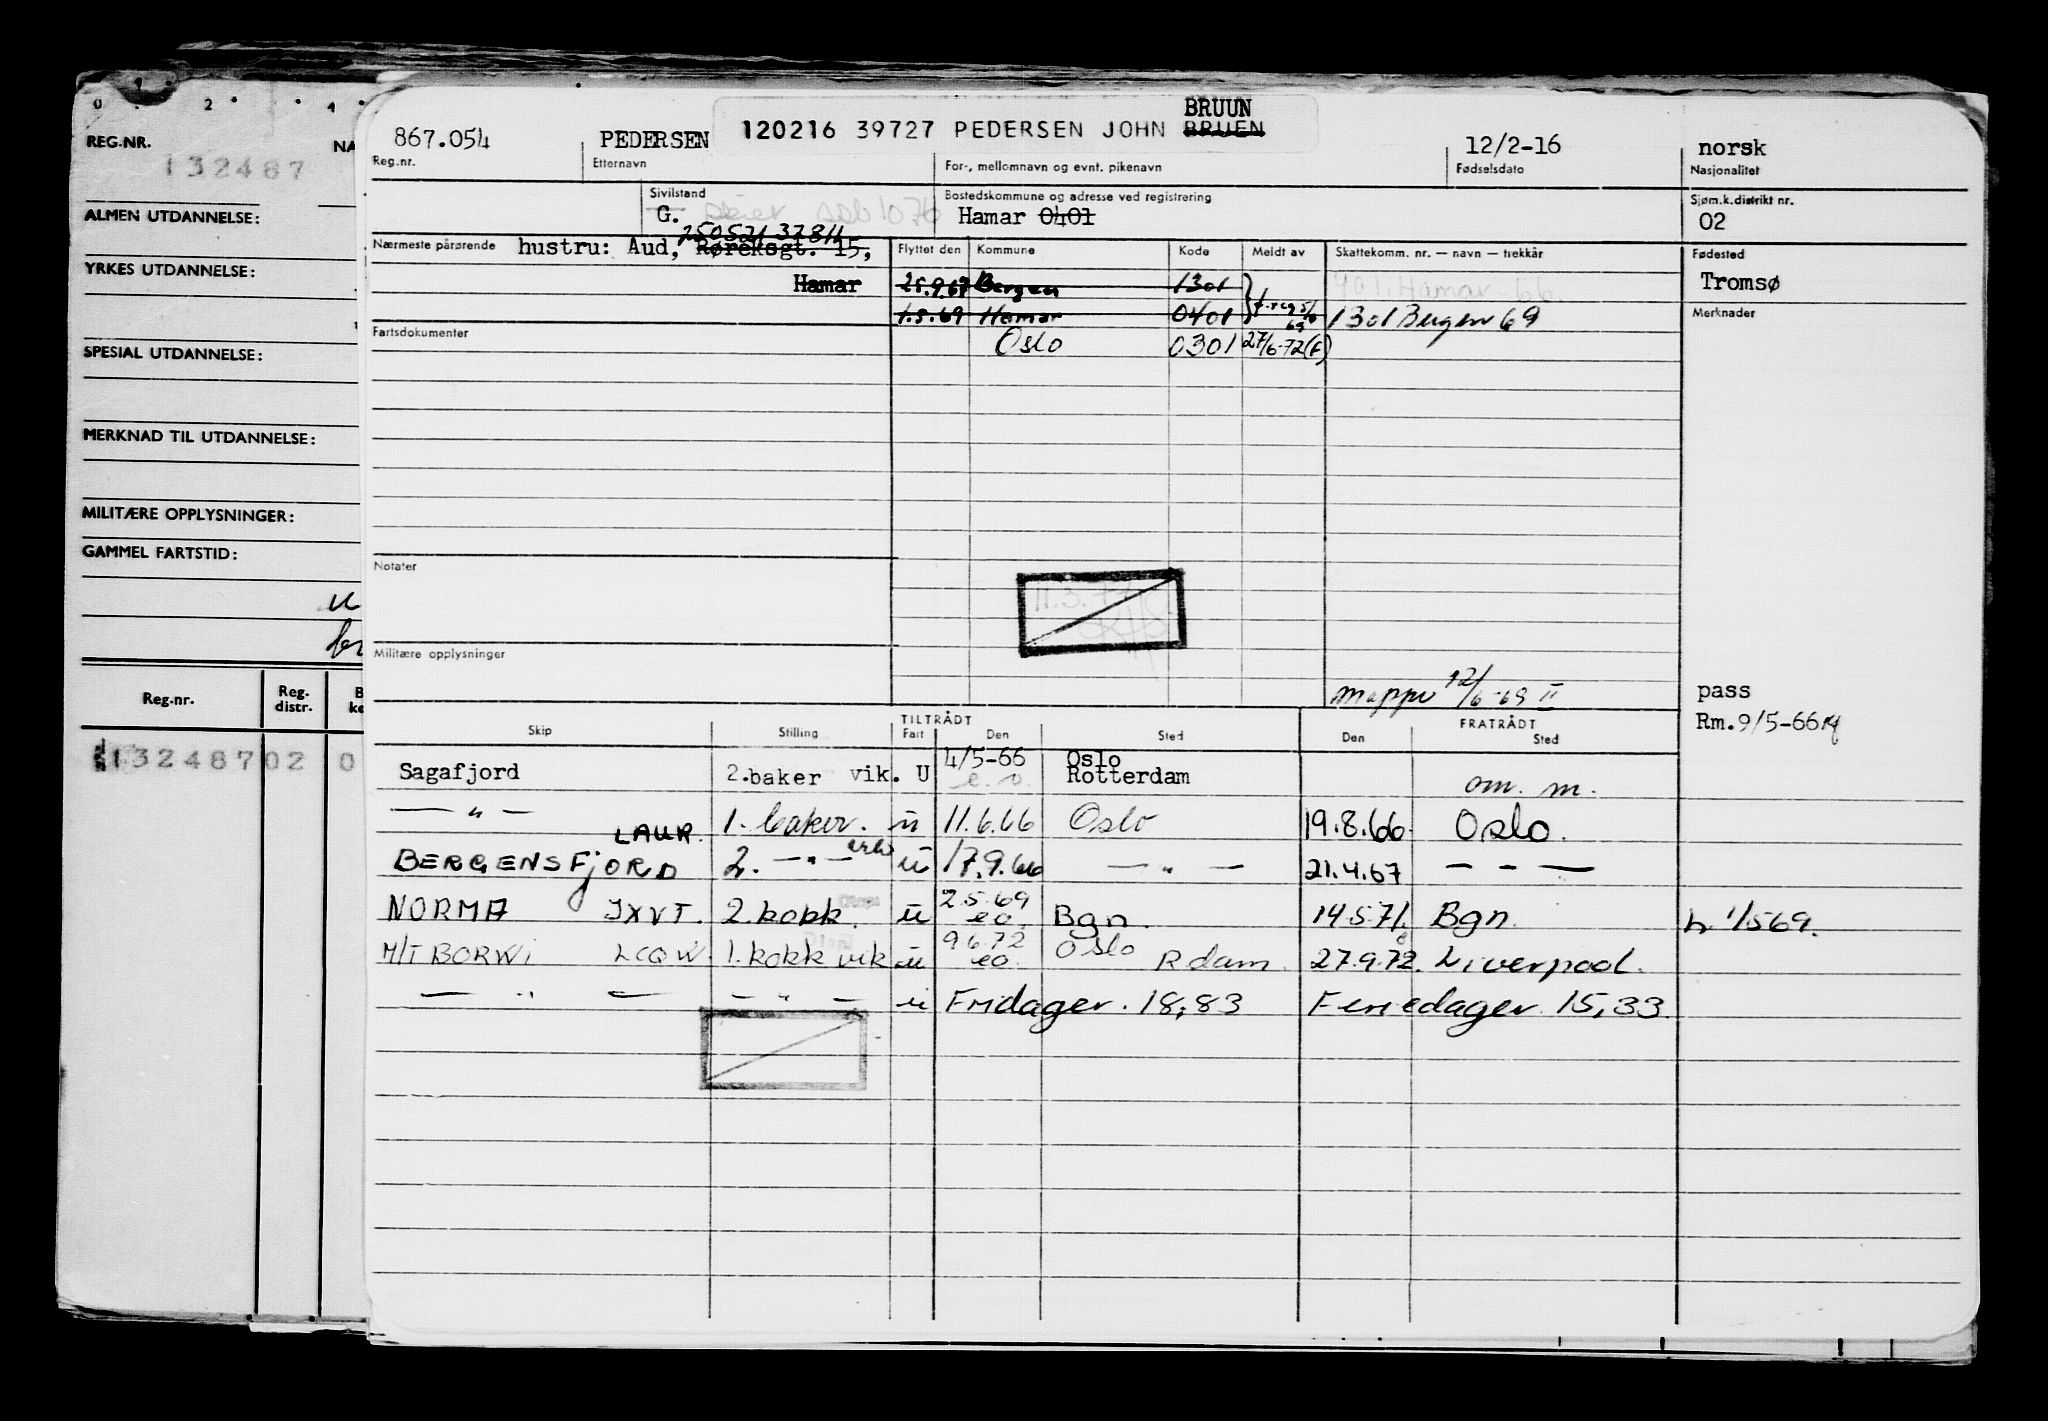 0 2 4
REG.NR.
NA
132487
ALMEN UTDANNELSE:
YRKES UTDANNELSE:
SPESIAL UTDANNELSE:
MERKNAD TIL UTDANNELSE:
MILITÆRE OPPLYSNINGER:
GAMMEL FARTSTID:
Reg.nr. Reg. distr.
132487 02 0
BRUUN
867.054 PEDERSEN 120216 39727 PEDERSEN JOHN BRUEN 12/2-16 norsk
Reg.nr. Etternavn For-, mellomnavn og evnt. pikenavn Fødselsdato Nasjonalitet
Sivilstand Bostedskommune og adresse ved registrering Sjøm.k.distrikt nr.
G. Hamar 0401 02
250521 37811
Nærmeste pårørende hustru: Aud, Røreksgt. 15, Flyttet den Kommune Kode Meldt av Skattekomm. nr. — navn — trekkår Fødested
Hamar 25.9.67 Bergen 1301 401. Hamar. 66 Tromsø
1.5.69 Hamar 0401 1301 Bergen 69 Merknader
Fartsdokumenter Oslo 0301 27/6-72(F)
Notater
11.3.77
Militære opplysninger
mappe 12/6-69 II pass
Rm.9/5-66
TILTRÅDT FRATRÅDT
Skip Stilling Fart Den Sted Den Sted
4/5-66 Oslo
Sagafjord 2.baker vik. U e.o. Rotterdam om. m.
— " — 1. baker. u 11.6.66 Oslo 19.8.66 Oslo.
LAUR.
BERGENSFJORD 2. — " — u 17.9.66 — " — 21.4.67 — " —
2.5.69
NORMA JXVT. 2. kokk. u eo Bgn. 14.5.71. Bgn. h. 1/569.
9.6.72 Oslo
M/T BORWI LCQW. 1. kokk vik u eo. Rdam. 27.9.72. Liverpool.
— " — — " — u Fridager. 18,83 Feriedager. 15,33